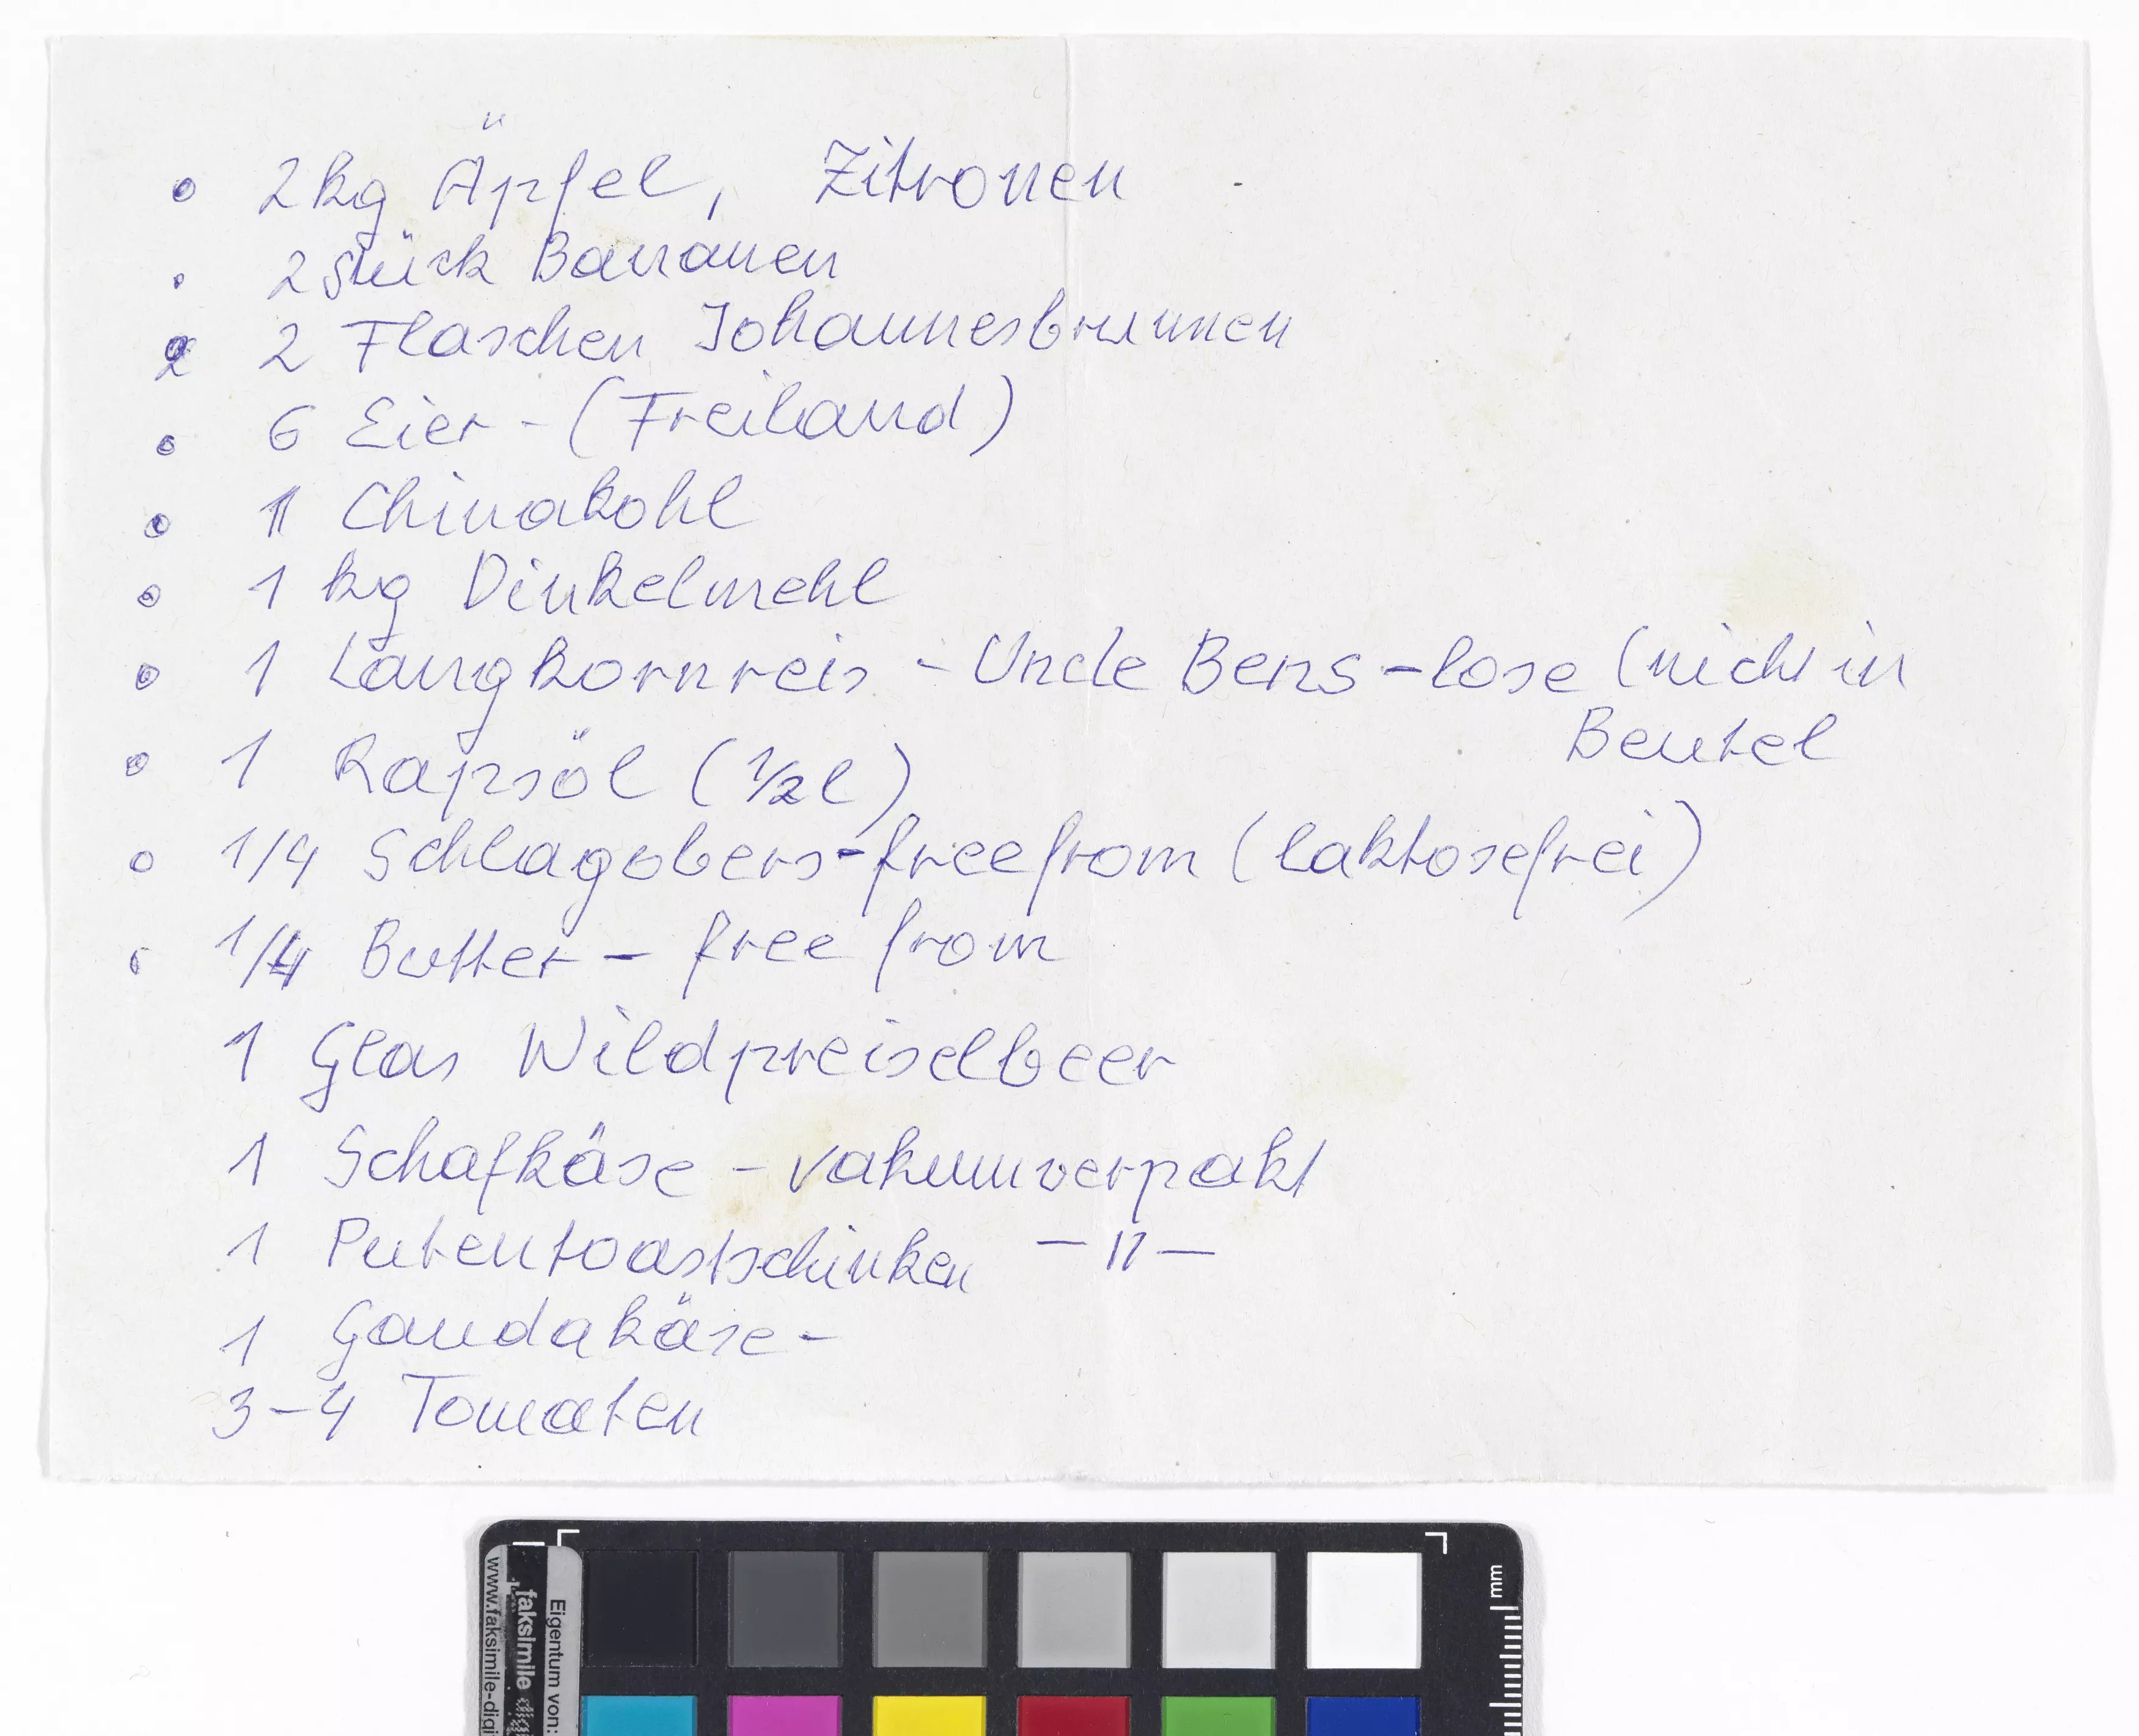 • 2 kg Äpfel, Zitronen
• 2 Stück Bananen
• 2 Flaschen Johannesbrunnen
• 6 Eier - (Freiland)
• 1 Chinakohl
• 1 kg Dinkelmehl
• 1 Langkornreis - Uncle Bens - lose (nicht in
Beutel
• 1 Rapsöl (1/2 l)
• 1/4 Schlagobers - freefrom (laktosefrei)
• 1/4 Butter - free from
1 Glas Wildpreiselbeer
1 Schafkäse - vakuumverpakt
1 Putentoastschinken — 11 —
1 Goudakäse -
3-4 Tomaten
mm
Eigentum von:
faksimile digi
www.faksimile-digi